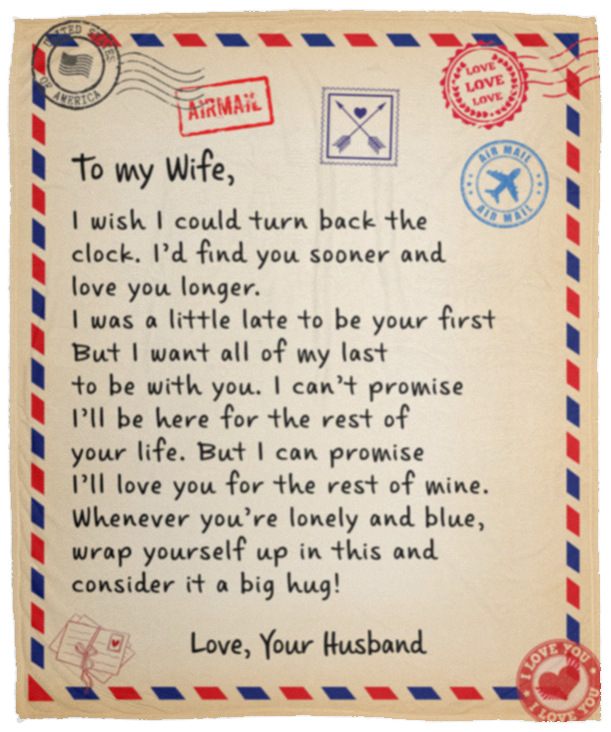 UNITED STATES
OF AMERICA
AIRMAIL
LOVE
LOVE
LOVE
AIR MAIL
AIR MAIL
To my Wife,
I wish I could turn back the
clock. I'd find you sooner and
love you longer.
I was a little late to be your first
But I want all of my last
to be with you. I can't promise
I'll be here for the rest of
your life. But I can promise
I'll love you for the rest of mine.
Whenever you're lonely and blue,
wrap yourself up in this and
consider it a big hug!
Love, Your Husband
I LOVE YOU
I LOVE YOU